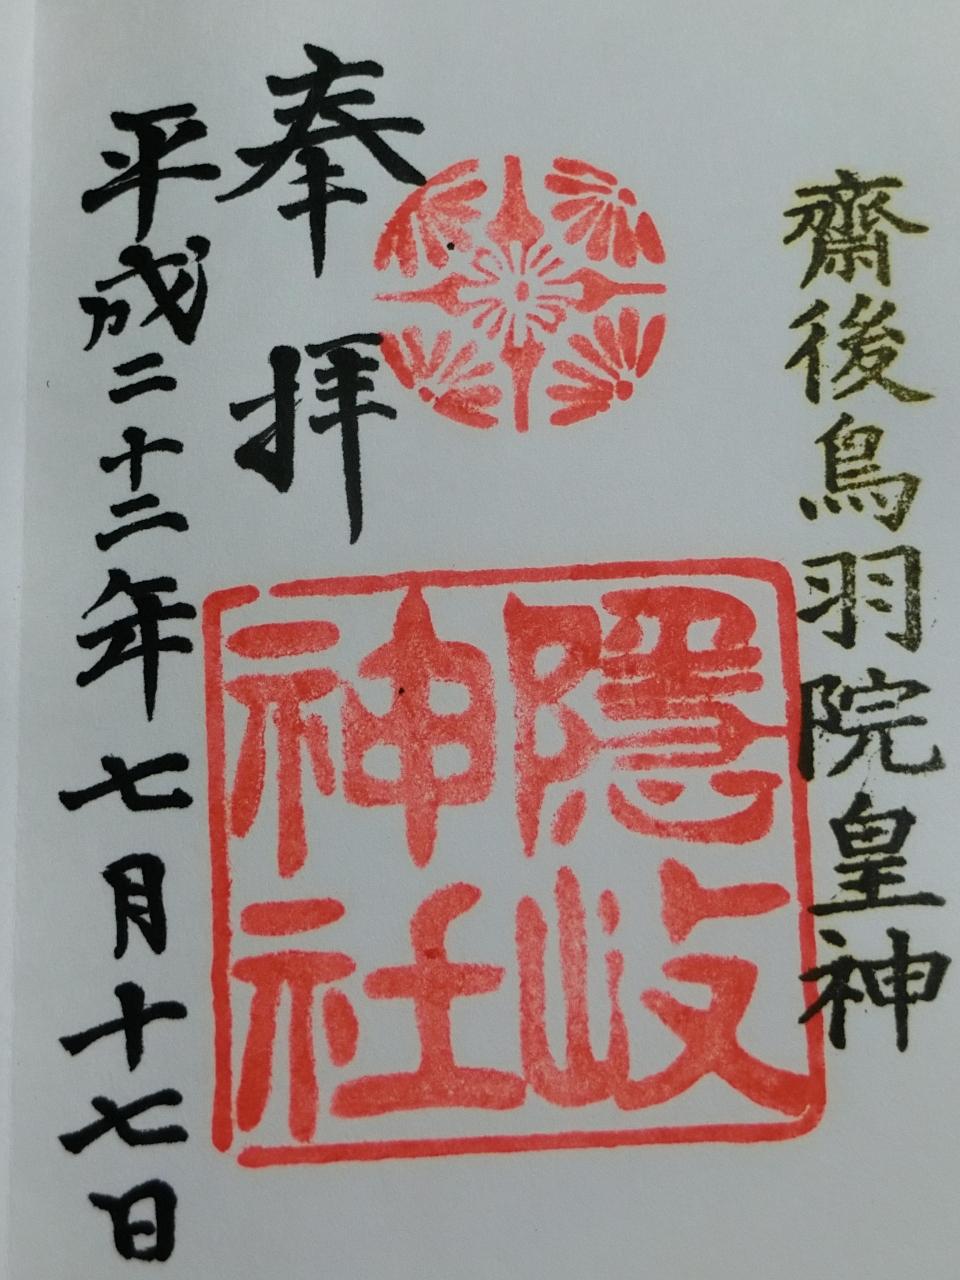 齋後鳥羽院皇神
奉拝
隠岐
神社
平成二十二年七月十七日